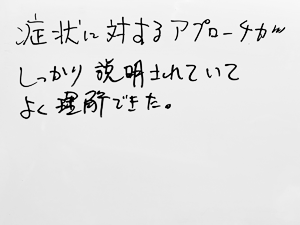 症状に対するアプローチが
しっかり説明されていて
よく理解できた。